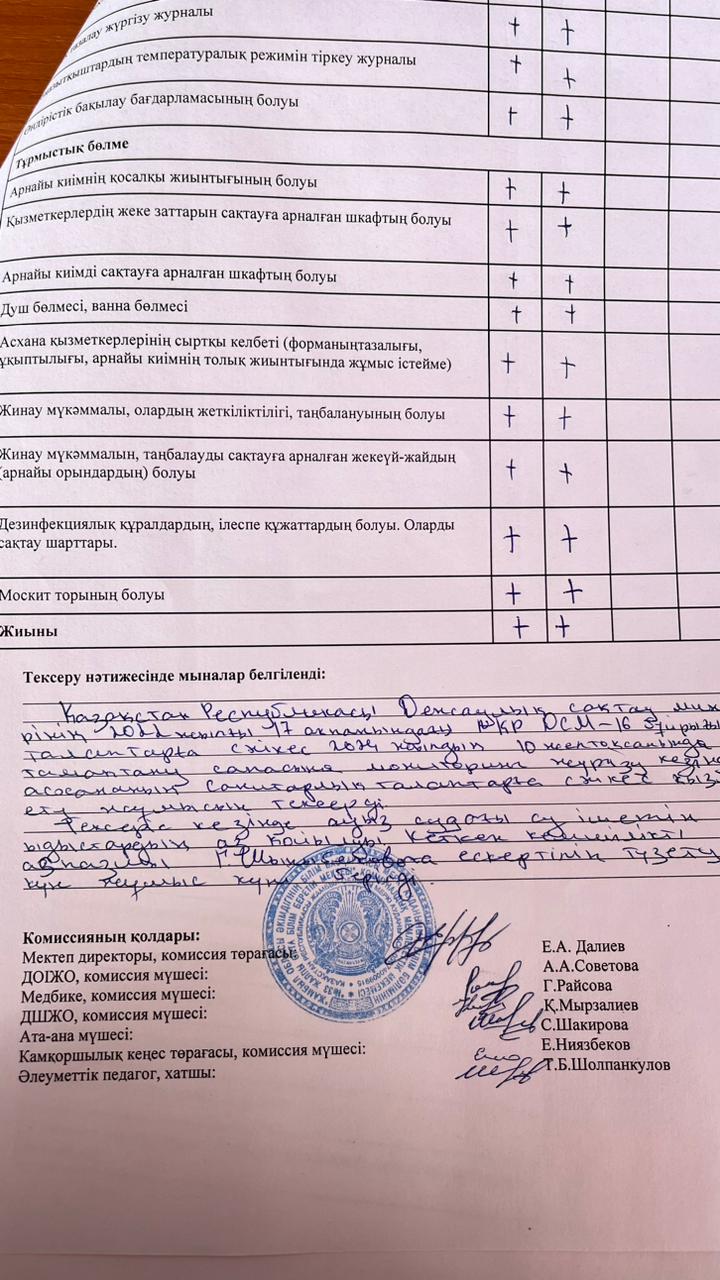 жүргізу журналы + +
температуралық режимін тіркеу журналы + +
бақылау бағдарламасының болуы + +
Тұрмыстық бөлме
Арнайы киімнің қосалқы жиынтығының болуы + +
Қызметкерлердің жеке заттарын сақтауға арналған шкафтың болуы + +
Арнайы киімді сақтауға арналған шкафтың болуы + +
Душ бөлмесі, ванна бөлмесі + +
Асхана қызметкерлерінің сыртқы келбеті (форманыңтазалығы,
ұқыптылығы, арнайы киімнің толық жиынтығында жұмыс істейме) + +
Жинау мүкәммалы, олардың жеткіліктілігі, таңбалануының болуы + +
Жинау мүкәммалын, таңбалауды сақтауға арналған жекеүй-жайдың
(арнайы орындардың) болуы + +
Дезинфекциялық құралдардың, ілеспе құжаттардың болуы. Оларды
сақтау шарттары. + +
Москит торының болуы + +
Жиыны + +
Тексеру нәтижесінде мыналар белгіленді:
Қазақстан Республикасы Денсаулық сақтау
2022 жылғы 17 ақпанындағы ҚР ДСМ-16
талаптарға сәйкес 2024 жылдың 10 желтоқсанында
тамақтану сапасына мониторинг жүргізу
асхананың санитарлық талаптарға сәйкес
ету жұмысын тексерді
Тексеріс кезінде ауыз су
ыдыстардың аз қойылуы кеткен кемшілікті
ескертіліп түзету
күн жұмыс күні берілді.
Комиссияның қолдары:
Мектеп директоры, комиссия төрағасы Е.А. Далиев
ДОІЖО, комиссия мүшесі: А.А.Советова
Медбике, комиссия мүшесі: Г.Райсова
ДШЖО, комиссия мүшесі: Қ.Мырзалиев
Ата-ана мүшесі: С.Шакирова
Камқоршылық кеңес төрағасы, комиссия мүшесі: Е.Ниязбеков
Әлеуметтік педагог, хатшы: Т.Б.Шолпанкулов